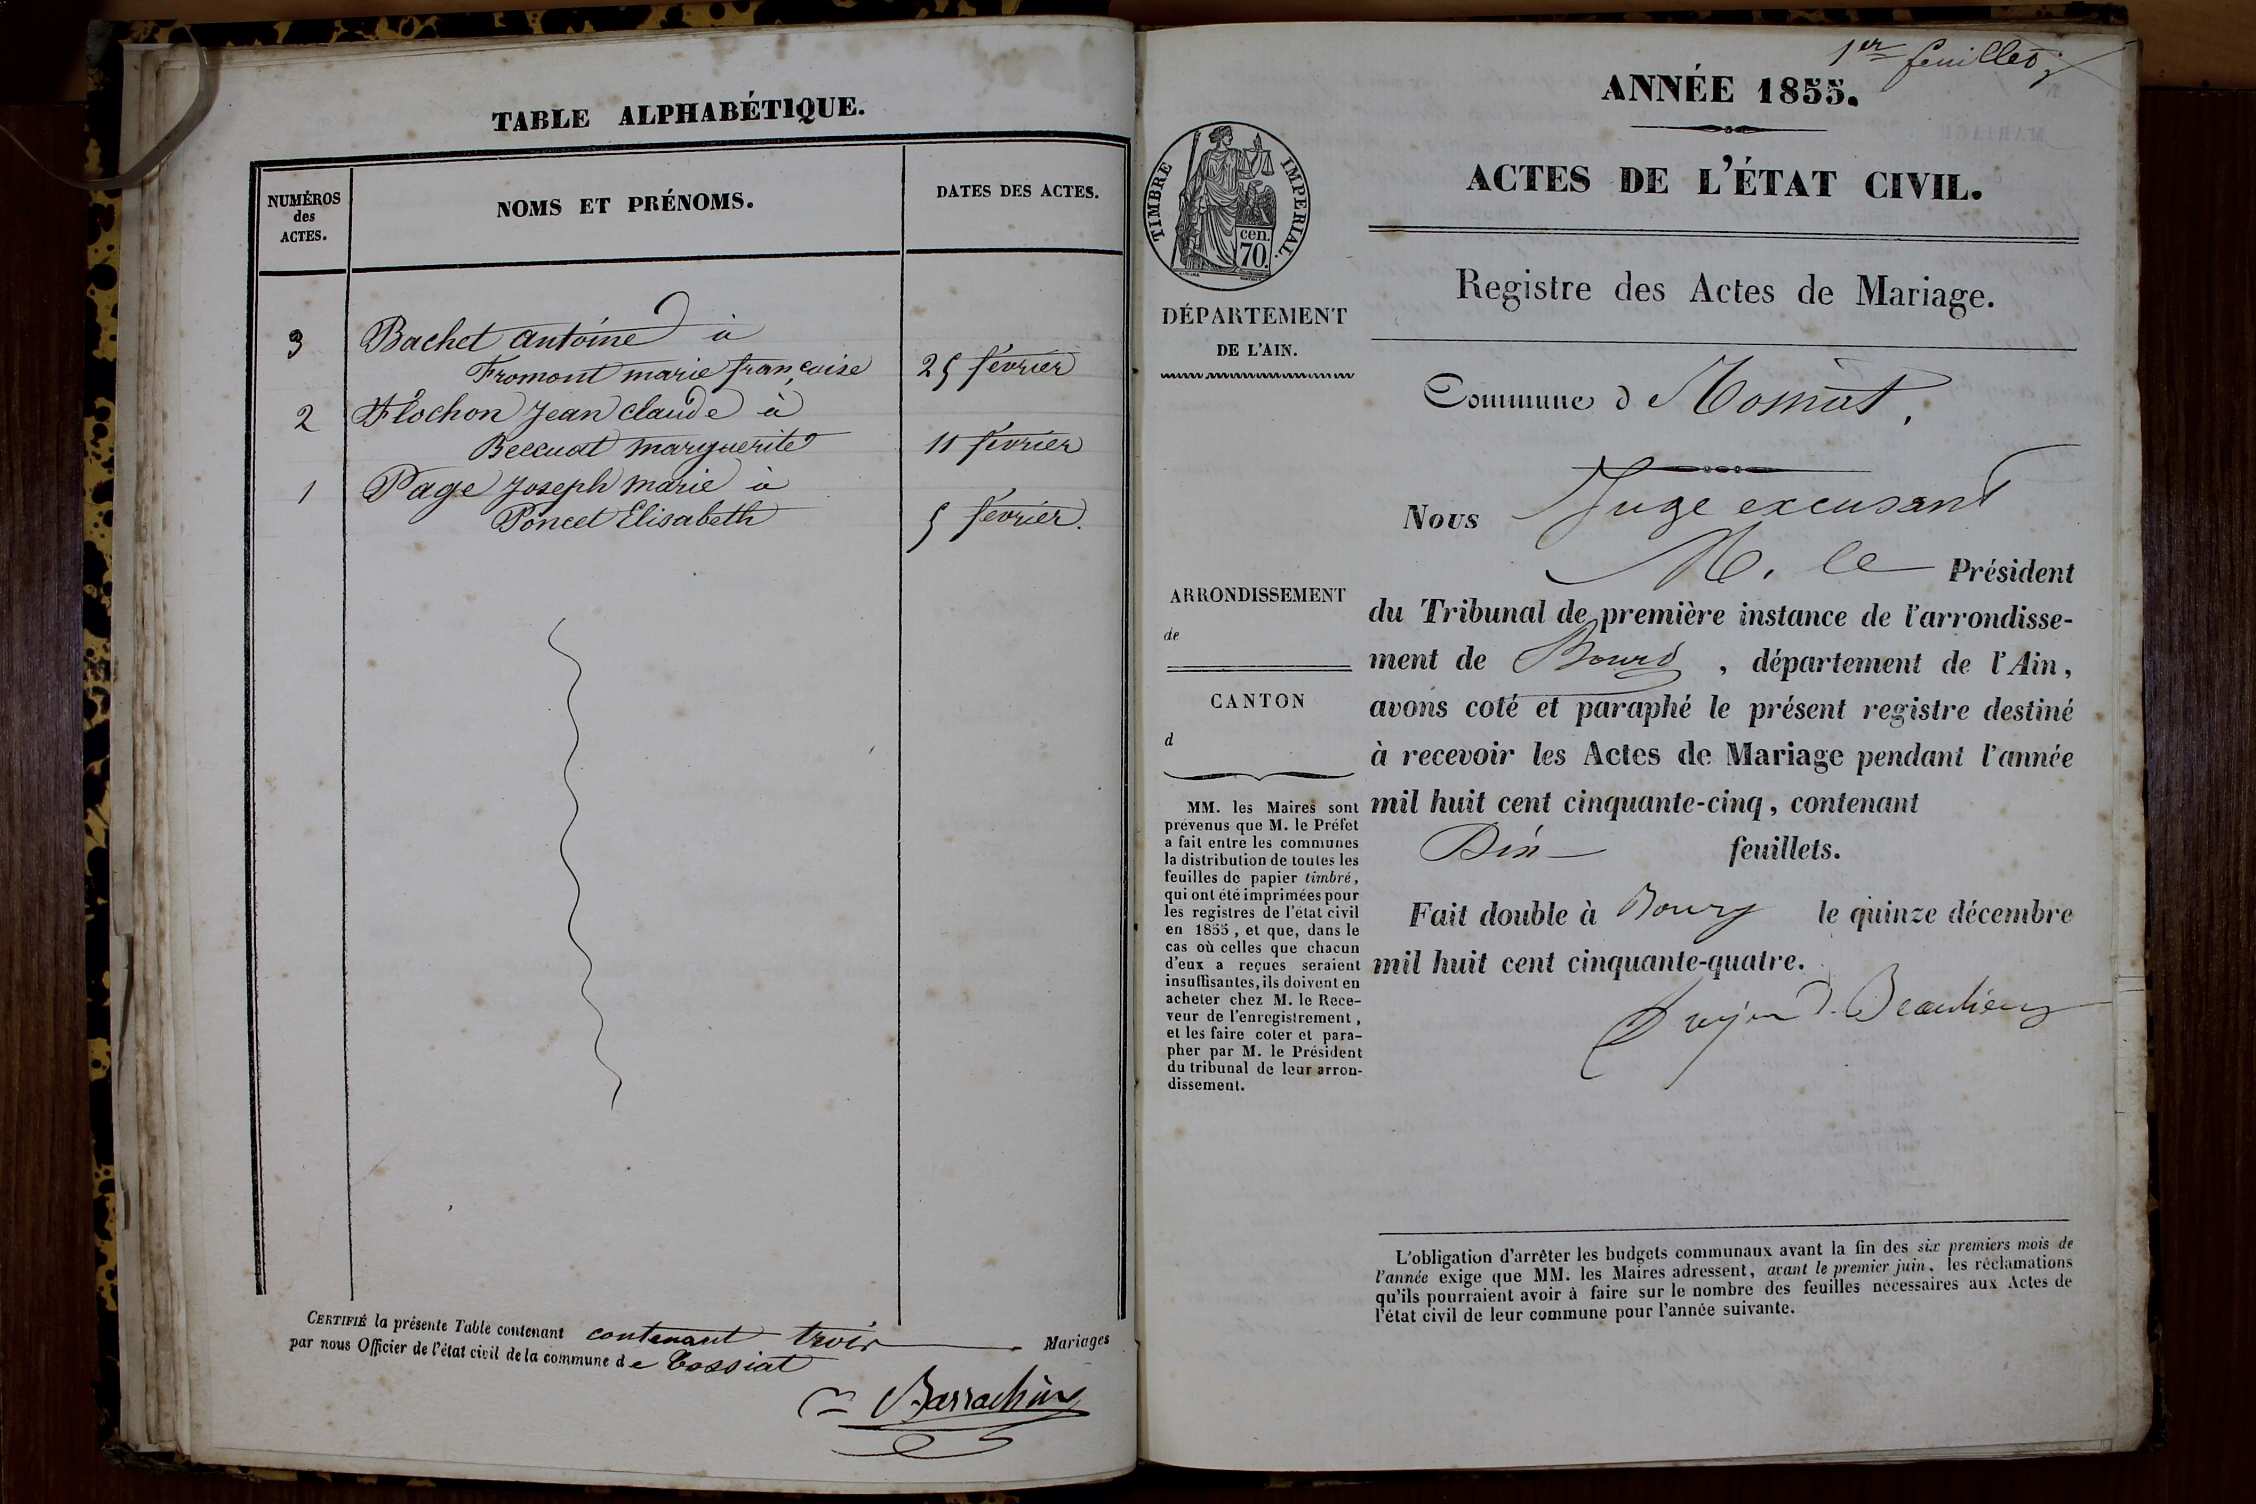 TABLE ALPHABÉTIQUE.
NUMÉROS
des
ACTES.
NOMS ET PRÉNOMS.
DATES DES ACTES.
3 Bachet antoine à
Fromont marie françoise 25 février
2 Flochon Jean claude à
Beccuat marguerite 11 février
1 Page Joseph marie à
Poncet Elisabeth 5 février.
CERTIFIÉ la présente Table contenant contenant trois Mariages
par nous Officier de l'état civil de la commune de Tossiat
Barrachin
1er feuillet
ANNÉE 1855.
ACTES DE L'ÉTAT CIVIL.
TIMBRE IMPÉRIAL.
cen.
70.
DÉPARTEMENT
DE L'AIN.
ARRONDISSEMENT
de
CANTON
d
MM. les Maires sont
prévenus que M. le Préfet
a fait entre les communes
la distribution de toutes les
feuilles de papier timbré,
qui ont été imprimées pour
les registres de l'état civil
en 1855, et que, dans le
cas où celles que chacun
d'eux a reçues seraient
insuffisantes, ils doivent en
acheter chez M. le Rece-
veur de l'enregistrement,
et les faire coter et para-
pher par M. le Président
du tribunal de leur arron-
dissement.
Registre des Actes de Mariage.
Commune d
Nous Juge excusant
M. le Président
du Tribunal de première instance de l'arrondisse-
ment de Bourg, département de l'Ain,
avons coté et paraphé le présent registre destiné
à recevoir les Actes de Mariage pendant l'année
mil huit cent cinquante-cinq, contenant
Dix feuillets.
Fait double à Bourg le quinze décembre
mil huit cent cinquante-quatre.
L'obligation d'arrêter les budgets communaux avant la fin des six premiers mois de
l'année exige que MM. les Maires adressent, avant le premier juin, les réclamations
qu'ils pourraient avoir à faire sur le nombre des feuilles nécessaires aux Actes de
l'état civil de leur commune pour l'année suivante.